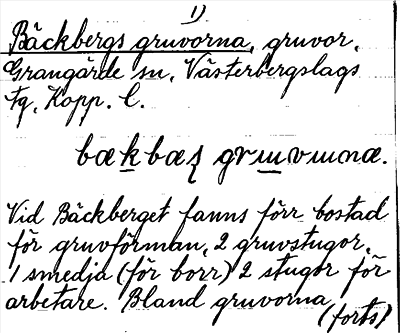 1)
Bäckbergs gruvorna, gruvor,
Grangärde sn, Västerbergslags
fg, Kopp. l.
Vid Bäckberget fanns förr bostad
för gruvförman, 2 gruvstugor,
1 smedja (för borr) 2 stugor för
arbetare. Bland gruvorna
(forts)